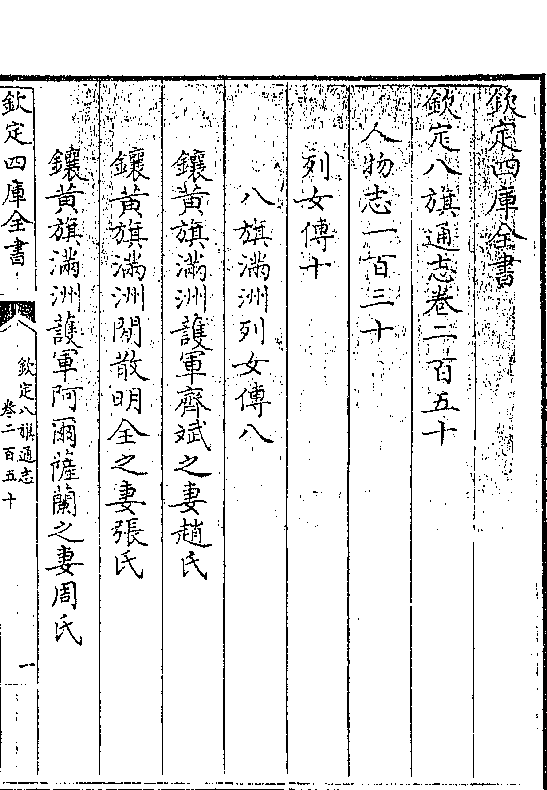 欽定四庫全書
欽定八旗通志卷二百五十
人物志一百三十
列女傳十
八旗滿洲列女傳八
鑲黃旗滿洲護軍齊斌之妻趙氏
鑲黃旗滿洲閒散明全之妻張氏
鑲黃旗滿洲護軍阿爾薩蘭之妻周氏
欽定四庫全書
欽定八旗通志
卷二百五十
一